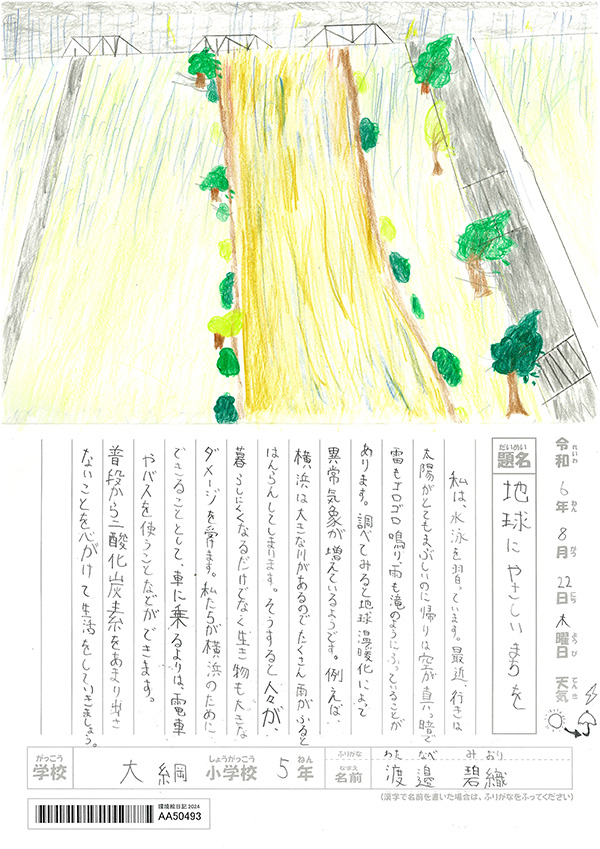 令和6年8月22日木曜日 天気
れいわ ねん がつ にち ようび てんき
だいめい
題名
地球にやさしいまちを
私は、水泳を習っています。最近、行きは
太陽がとてもまぶしいのに帰りは空が真っ暗で
雷もゴロゴロ鳴り、雨も滝のようにふっていることが
あります。調べてみると地球温暖化によって
異常気象が増えているようです。例えば、
横浜は大きな川があるのでたくさん雨がふると
はんらんしてしまいます。そうすると人々が、
暮らしにくくなるだけでなく生き物も大きな
ダメージを受けます。私たちが横浜のために、
できることとして、車に乗るよりは、電車
やバスを使うことなどができます。
普段から二酸化炭素をあまり出さ
ないことを心がけて生活をしていきましょう。
がっこう しょうがっこう ねん ふりがな わたなべ みおり
学校 大綱小学校 5年 なまえ 名前 渡邉 碧織
(漢字で名前を書いた場合は、ふりがなをふってください)
環境絵日記2024
AA50493